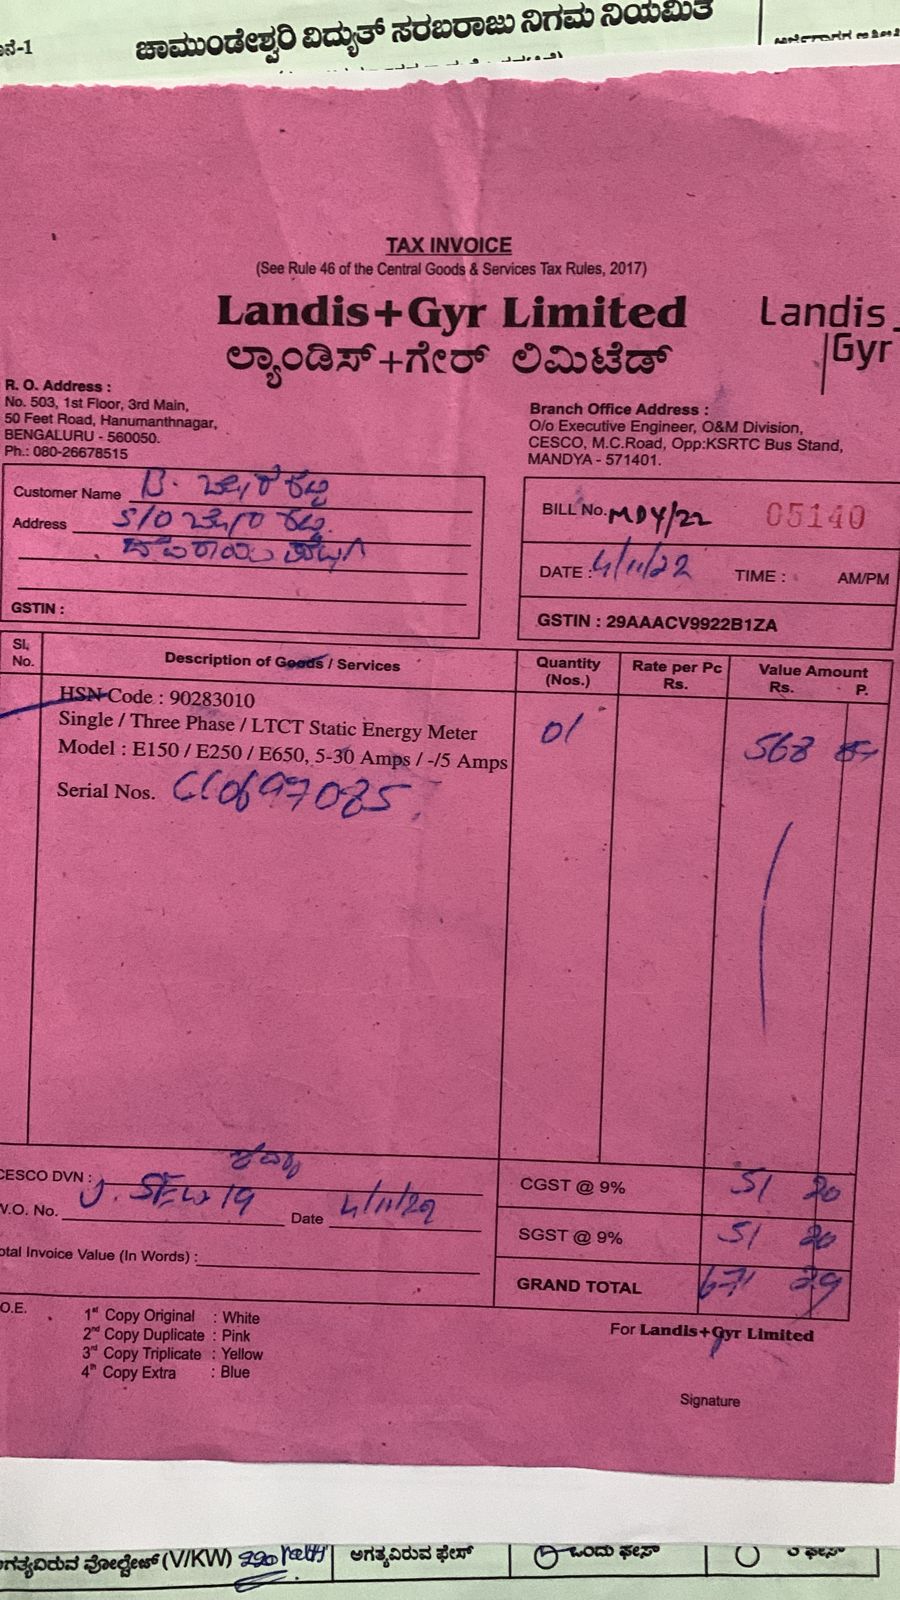 ಚಾಮುಂಡೇಶ್ವರಿ ವಿದ್ಯುತ್ ಸರಬರಾಜು ನಿಗಮ ನಿಯಮಿತ
TAX INVOICE
(See Rule 46 of the Central Goods & Services Tax Rules, 2017)
Landis+Gyr Limited
Landis Gyr
ಲ್ಯಾಂಡಿಸ್+ಗೇರ್ ಲಿಮಿಟೆಡ್
R. O. Address :
No. 503, 1st Floor, 3rd Main,
50 Feet Road, Hanumanthnagar,
BENGALURU - 560050.
Ph.: 080-26678515
Branch Office Address :
O/o Executive Engineer, O&M Division,
CESCO, M.C.Road, Opp:KSRTC Bus Stand,
MANDYA - 571401.
Customer Name
Address S/O
GSTIN :
BILL No. MDY/22 05140
DATE : 4/11/22 TIME : AM/PM
GSTIN : 29AAACV9922B1ZA
Sl. No. Description of Goods / Services Quantity (Nos.) Rate per Pc Rs. Value Amount Rs. P.
HSN Code : 90283010
Single / Three Phase / LTCT Static Energy Meter 01 568
Model : E150 / E250 / E650, 5-30 Amps / -/5 Amps
Serial Nos.
CESCO DVN :
W.O. No. Date 4/11/22
Total Invoice Value (In Words) :
CGST @ 9% 51 20
SGST @ 9% 51 20
GRAND TOTAL 671 29
O.E.
1st Copy Original : White
2nd Copy Duplicate : Pink
3rd Copy Triplicate : Yellow
4th Copy Extra : Blue
For Landis+Gyr Limited
Signature
ಅಗತ್ಯವಿರುವ ವೋಲ್ಟೇಜ್ (V/KW) ಅಗತ್ಯವಿರುವ ಫೇಸ್ ಒಂದು ಫೇಸ್